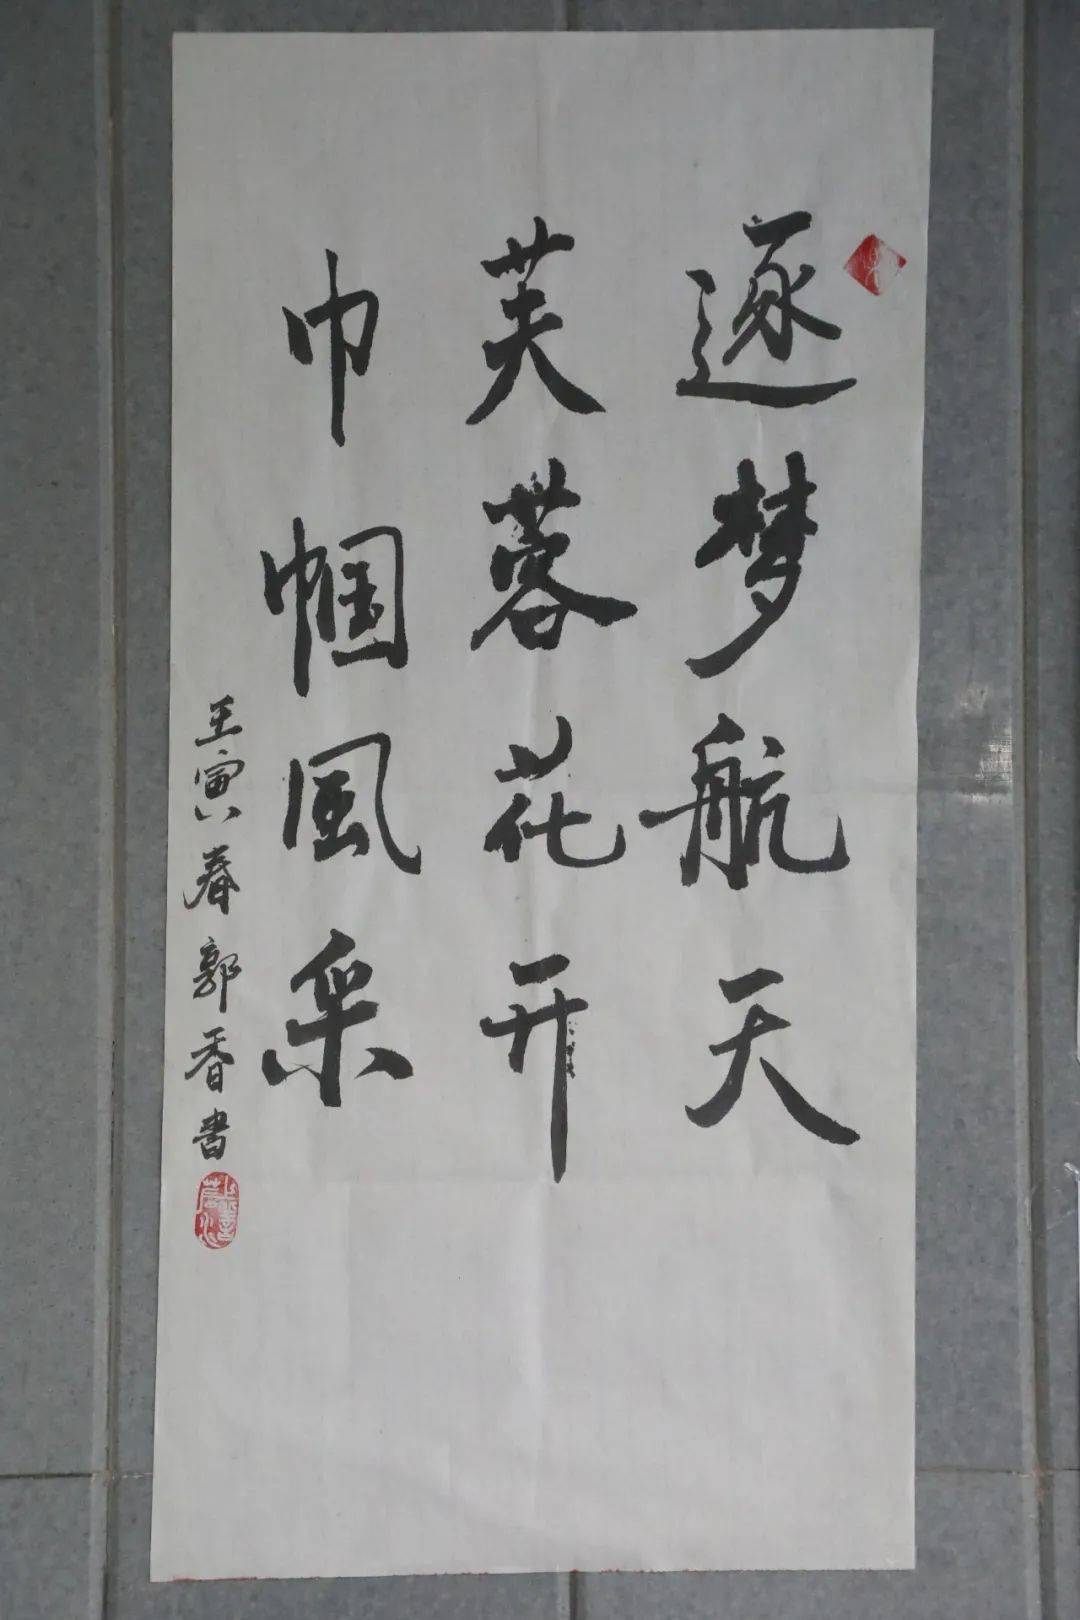 逐梦航天
芙蓉花开
巾帼風采
壬寅春郭香書